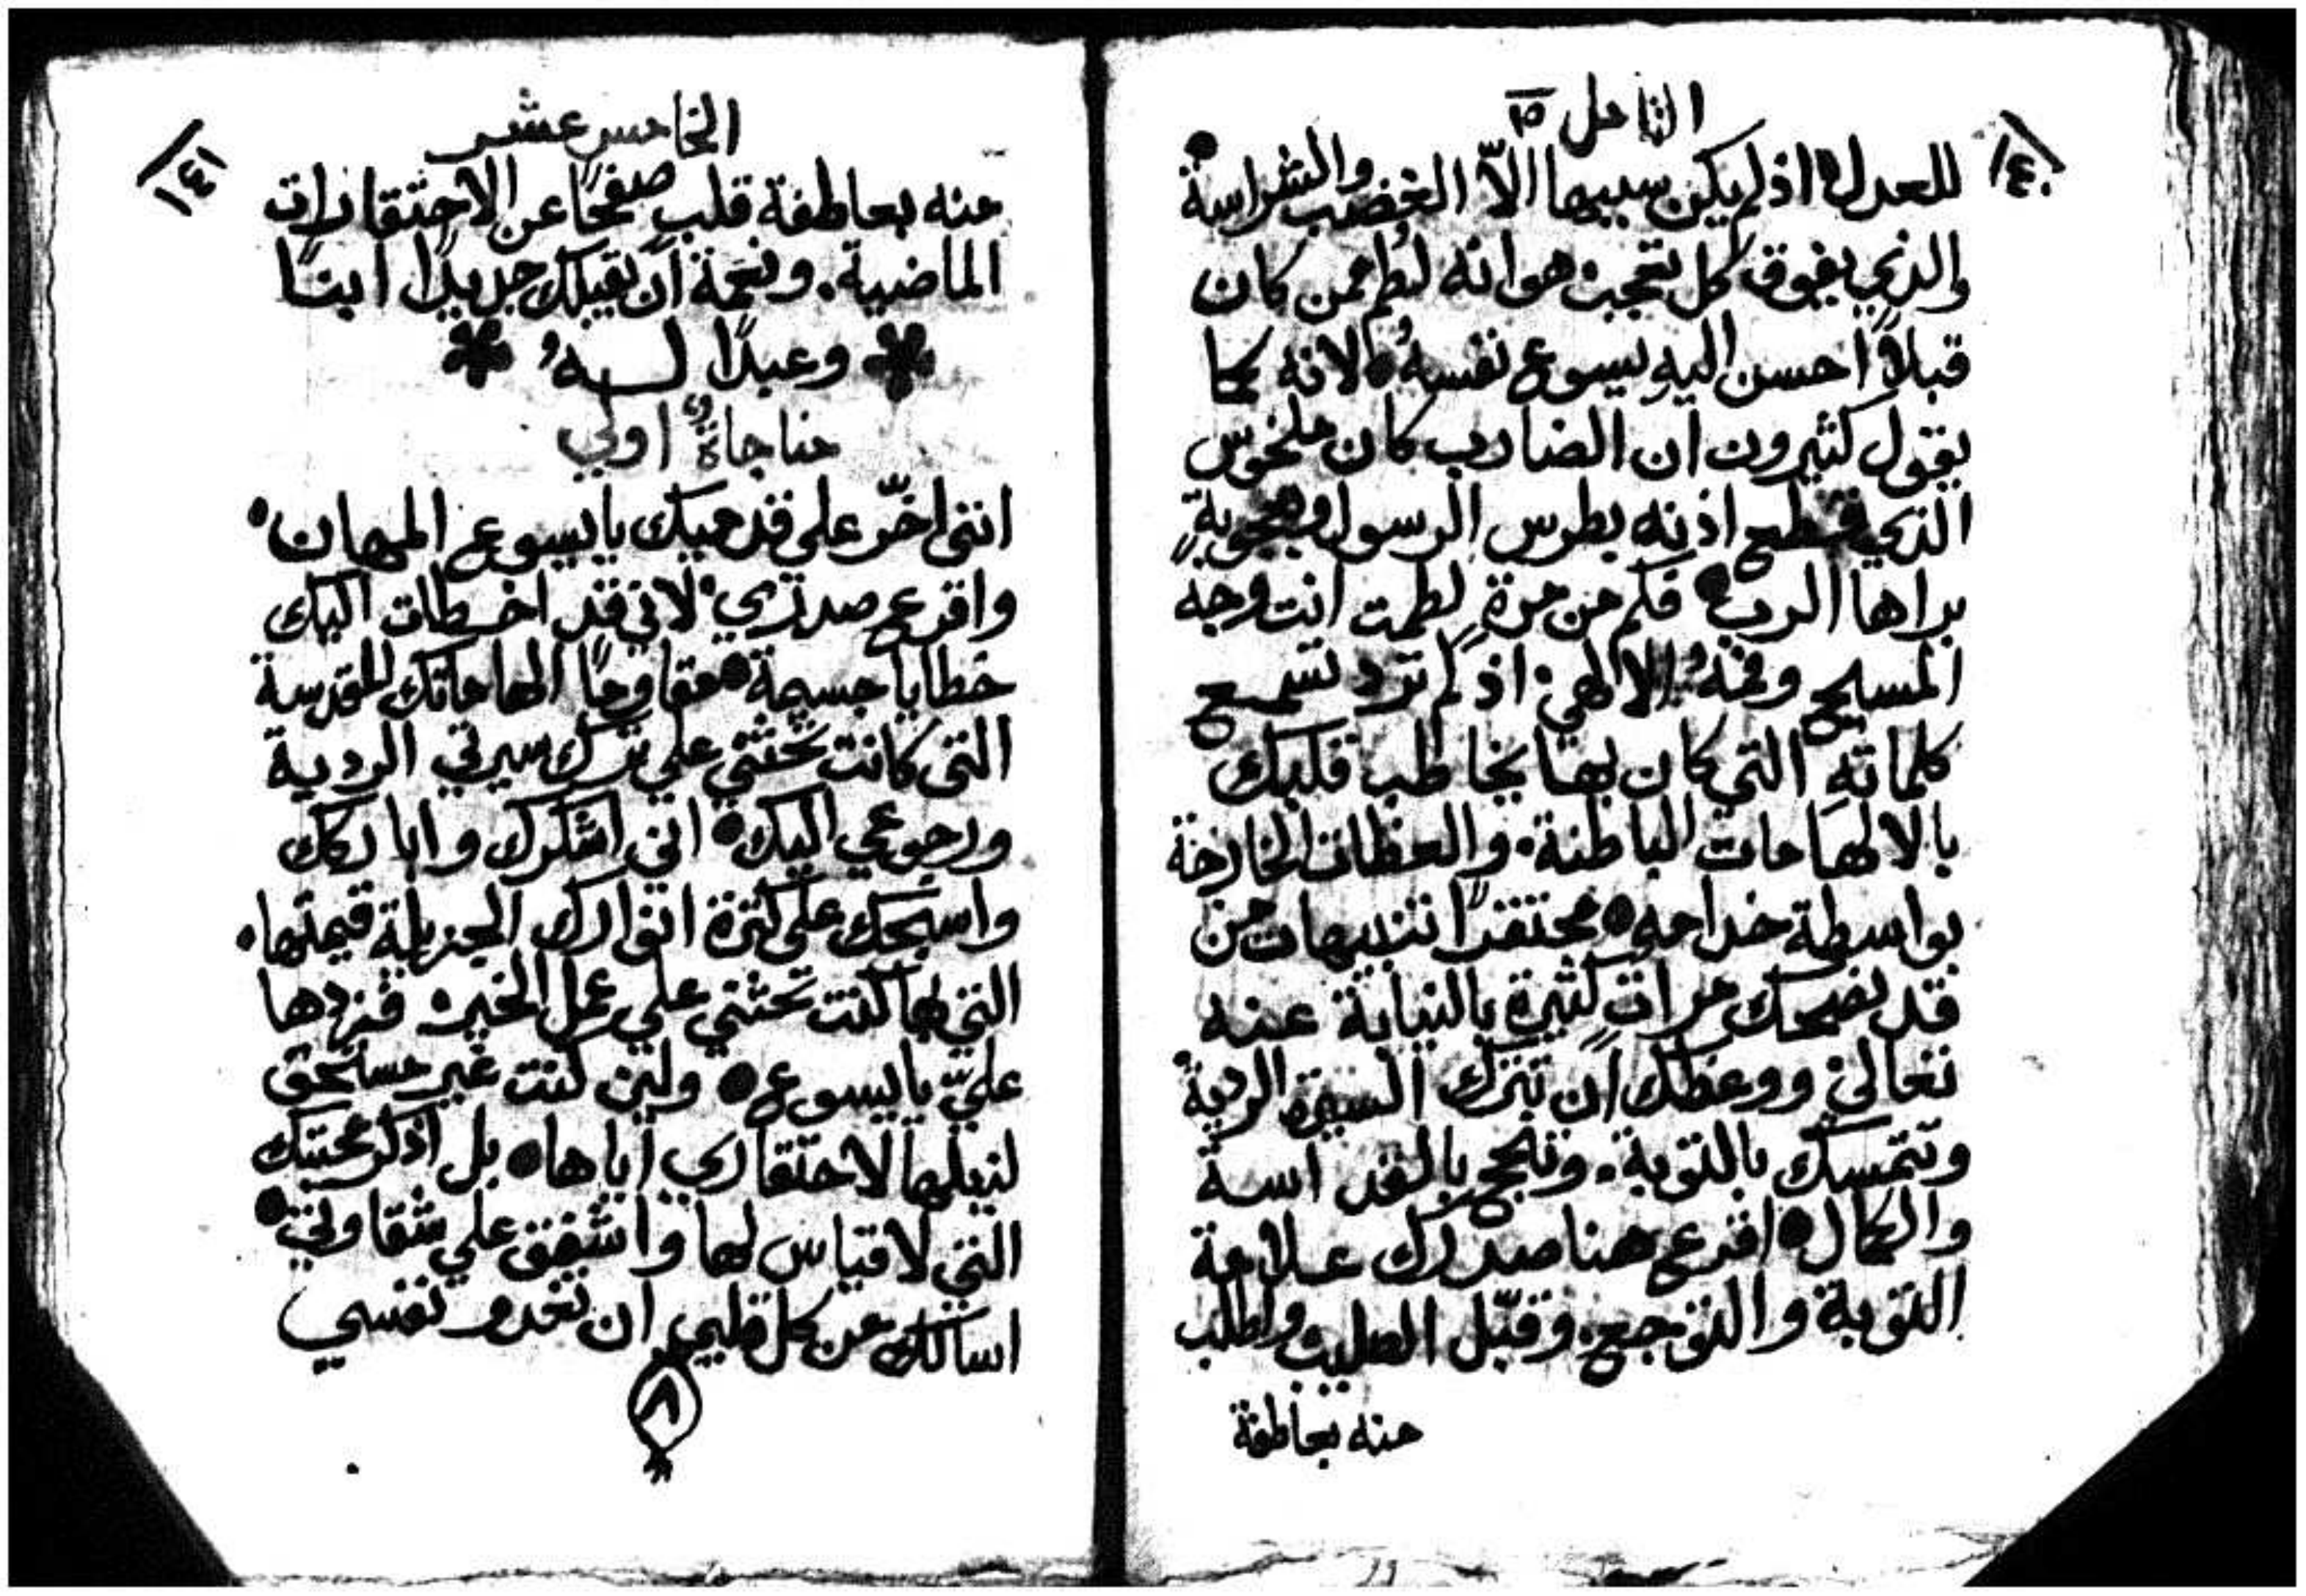 التامل ١٥
١٤٠
للعدل اذ لم يكن سببها الاّ الغضب والشراسة
والذي يفوق كل تعجب هو انه لُطِم ممن كان
قبلاً احسن اليهِ يسوع نفسهُ لانه كما
يقول كثيرون ان الضارب كان ملخوس
الذي قطع اذنه بطرس الرسول وبعجوبةٍ
براها الرب فكم من مرةٍ لطمت انت وجه
المسيح وفمهُ الالهي اذ لم ترد تسمع
كلماتهِ التي كان بها يخاطب قلبك
بالالهامات الباطنة والعظات الخارجة
بواسطة خدامه محتقرًا تنبيهات من
قد نصحك مراتٍ كثيرة بالنيابة عنه
تعالى ووعظك ان تترك السيرة الردية
وتتمسك بالتوبة وتنجح بالقداسة
والكمال اقرع هنا صدرك علامة
التوبة والتوجع وقبّل الصليب واطلب
منه بعاطفة
الخامس عشر
١٤١
منه بعاطفة قلب صفحًا عن الاحتقارات
الماضية. ونعمة ان يقبلك جديدًا ابنًا
وعبدًا لــهُ
مناجاةٌ اولي
انني اخرّ على قدميك يا يسوع المهان
واقرع صدري لاني قد اخطات اليك
خطايا جسيمة مقاومًا الهاماتك المقدسة
التي كانت تحثني علي ترك سيرتي الردية
ورجوعي اليك اني اشكرك واباركك
واسبحك على كثرة انوارك الجزيلة قيمتها.
التي بها كنت تحثني علي عمل الخير فزدها
عليّ يا يسوع ولين كنت غير مستحق
لنيلها لاحتقاري اياها بل اذكر محبتك
التي لا قياس لها واشفق علي شقاوتي
اسالك من كل قلبي ان تغدو نفسي
٨